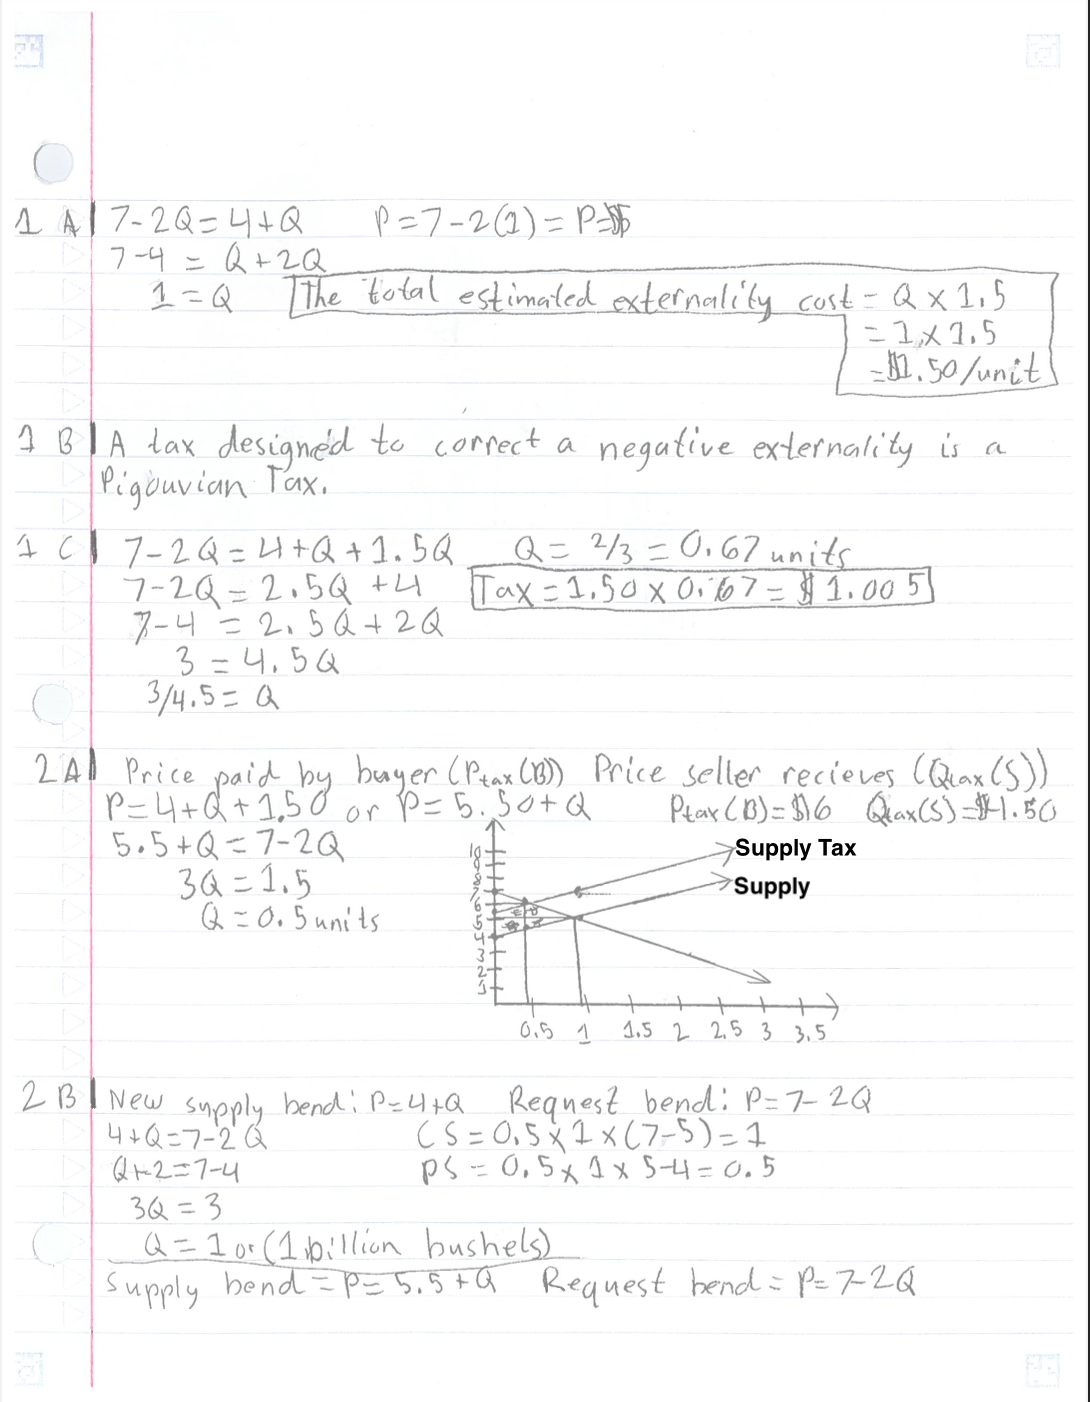 1 A 7-2Q=4+Q P=7-2(1)= P=$5
7-4 = Q+2Q
1=Q The total estimated externality cost = Q x 1.5
= 1 x 1.5
=$1.50/unit
1 B A tax designed to correct a negative externality is a
Pigouvian Tax.
1 C 7-2Q=4+Q+1.5Q Q= 2/3 = 0.67 units
7-2Q=2.5Q +4 Tax=1.50 x 0.67= $1.005
7-4 = 2.5Q+2Q
3 = 4.5Q
3/4.5= Q
2A Price paid by buyer (Ptax(B)) Price seller recieves (Qtax(S))
P=4+Q+1.50 or P=5.50+Q Ptax(B)=$6 Qtax(S)=$4.50
5.5+Q=7-2Q
3Q=1.5
Q=0.5 units
Supply Tax
Supply
10
9
8
7
6
5
4
3
2
1
0.5 1 1.5 2 2.5 3 3.5
2 B New supply bend: P=4+Q Request bend: P=7-2Q
4+Q=7-2Q CS=0.5x1x(7-5)=1
Q+2=7-4 PS=0.5x1x5-4=0.5
3Q=3
Q=1 or (1 billion bushels)
Supply bend=P=5.5+Q Request bend=P=7-2Q